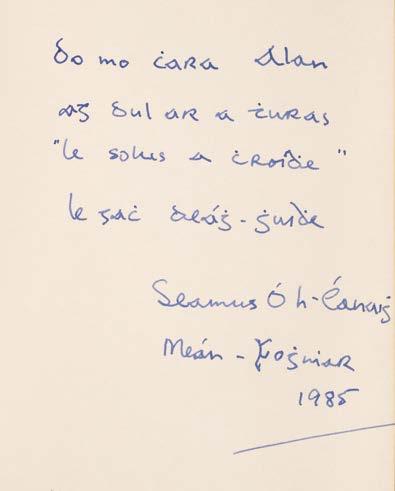 do mo ċara Alan
ag dul ar a ṫuras
"le solus a ċroíḋe"
le gaċ deáġ-ġuiḋe
Seamus Ó h-Éanaiġ
Meán-Foġṁar
1985